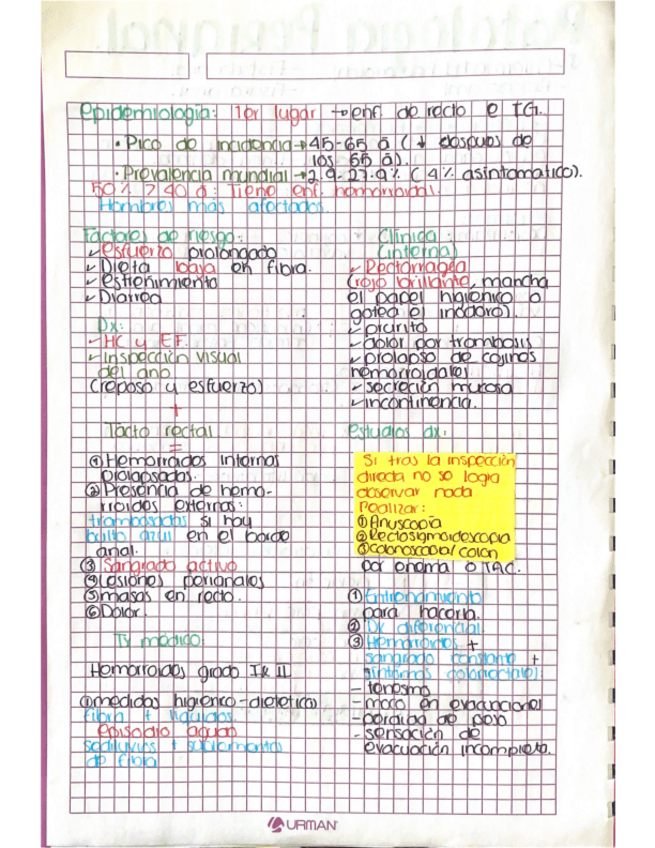 Epidemiología: 1er lugar → enf. de recto e IG.
• Pico de incidencia → 45-65 a (↓ después de
los 65 a).
• Prevalencia mundial → 2.9-27.9% (4% asintomatico).
50% > 40 a: Tiene enf. hemorroidal.
Hombres más afectados.
Factores de riesgo:
✓ esfuerzo prolongado
✓ Dieta baja en fibra.
✓ estreñimiento
✓ Diarrea
Dx:
✓ HC y EF.
✓ Inspección visual
del ano
(reposo y esfuerzo)
+
Tacto rectal
=
① Hemorroides internas
prolapsadas.
② Presencia de hemo-
rroides externas:
trombosadas si hay
bulto azul en el borde
anal.
③ Sangrado activo
④ Lesiones perianales
⑤ masas en recto.
⑥ Dolor.
Tx médico:
Hemorroides grado I & II
① medidas higienico-dieteticas
fibra + liquidos.
episodio agudo
sediluvios + suplementos
de fibra
Clínica:
(interna)
✓ Rectorragia
(rojo brillante, mancha
el papel higiénico o
gotea el inodoro).
✓ prurito
✓ dolor por trombosis
✓ prolapso de cojines
hemorroidales
✓ secreción mucosa
✓ incontinencia.
estudios dx:
Si tras la inspección
directa no se logra
observar nada
realizar:
① Anuscopia
② Rectosigmoidoscopia
③ colonoscopia/colon
por enema o TAC.
① Entrenamiento
para hacerla.
② Dx diferencial
③ Hemorroides +
sangrado constante +
síntomas colorectales:
- tenesmo
- moco en evacuaciones
- perdida de peso
- sensación de
evacuación incompleta.
URMAN